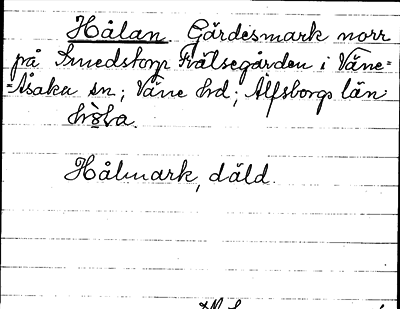 Hålan. Gärdesmark norr
på Smedstorp Frälsegården i Väne-
-Åsaka sn; Väne hd; Älfsborgs län

Hålmark, däld.